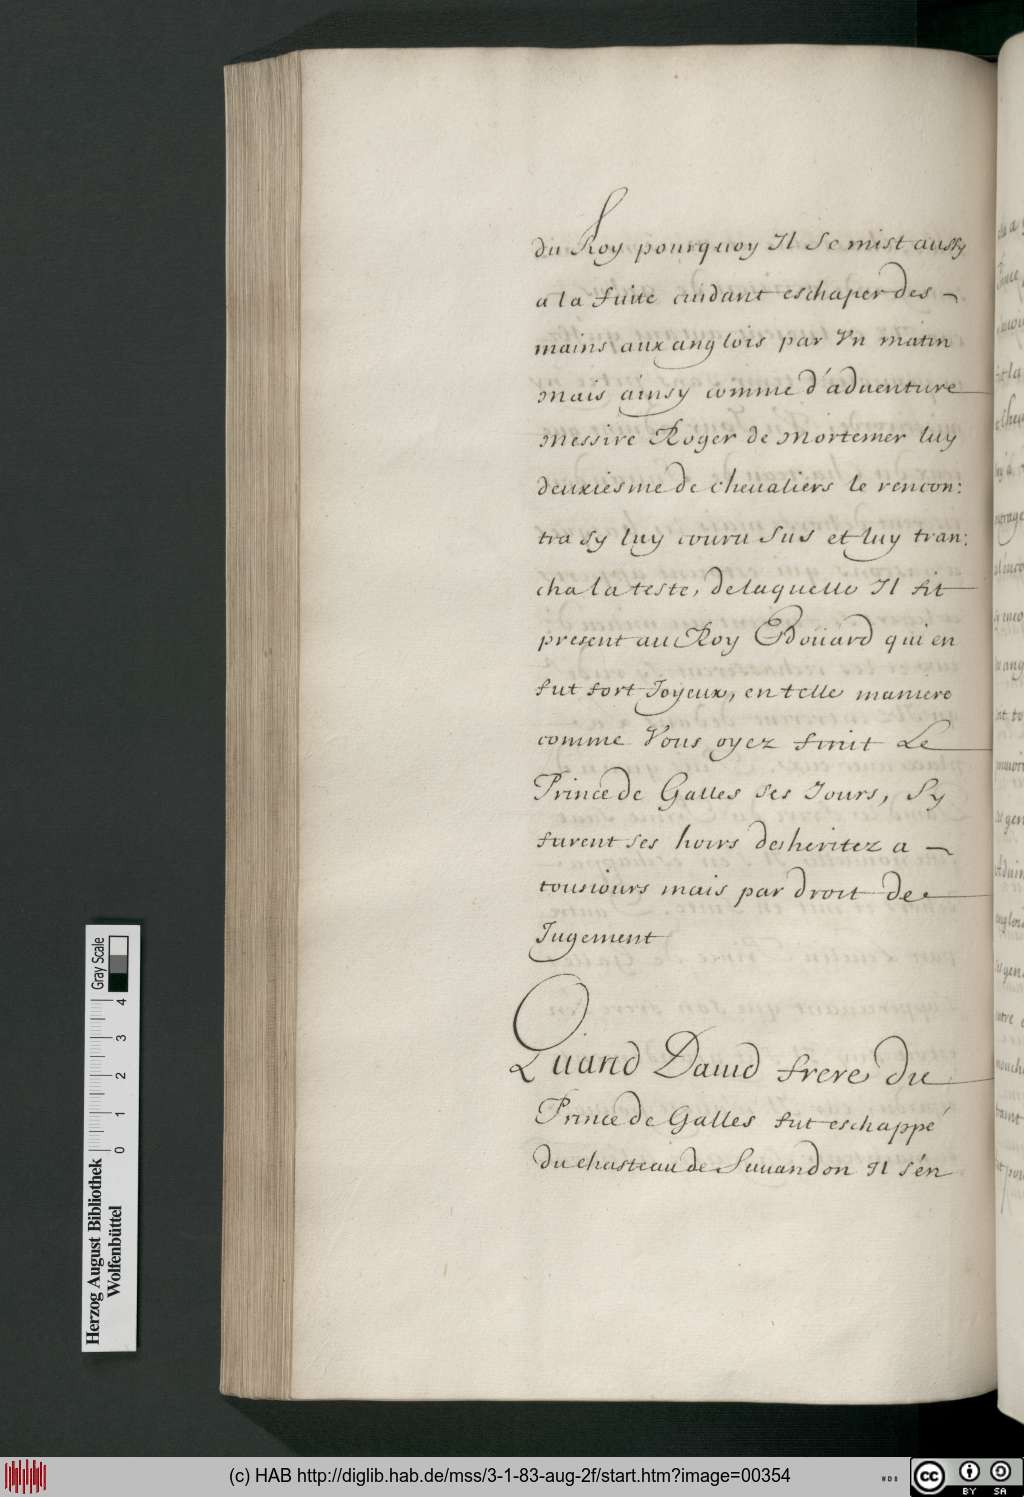 du Roy pourquoy Il se mist aussy
a la fuite cuidant eschaper des
mains aux anglois par Vn matin
mais ainsy comme d'aduenture
messire Roger de mortemer luy
deuxiesme de cheualiers le rencon:
tra sy luy couru sus et luy tran:
cha la teste, de laquelle Il fit
present au Roy Edoüard qui en
fut fort Joyeux, en telle maniere
comme Vous oyez finit Le
Prince de Galles ses Jours, Sy
furent ses hoirs desheritez a
tousiours mais par droit de
Jugement
Quand Dauid frere du
Prince de Galles fut eschappé
du chasteau de Suuandon Il s'én
Herzog August Bibliothek
Wolfenbüttel
0 1 2 3 4
Gray Scale
(c) HAB http://diglib.hab.de/mss/3-1-83-aug-2f/start.htm?image=00354
cc BY SA